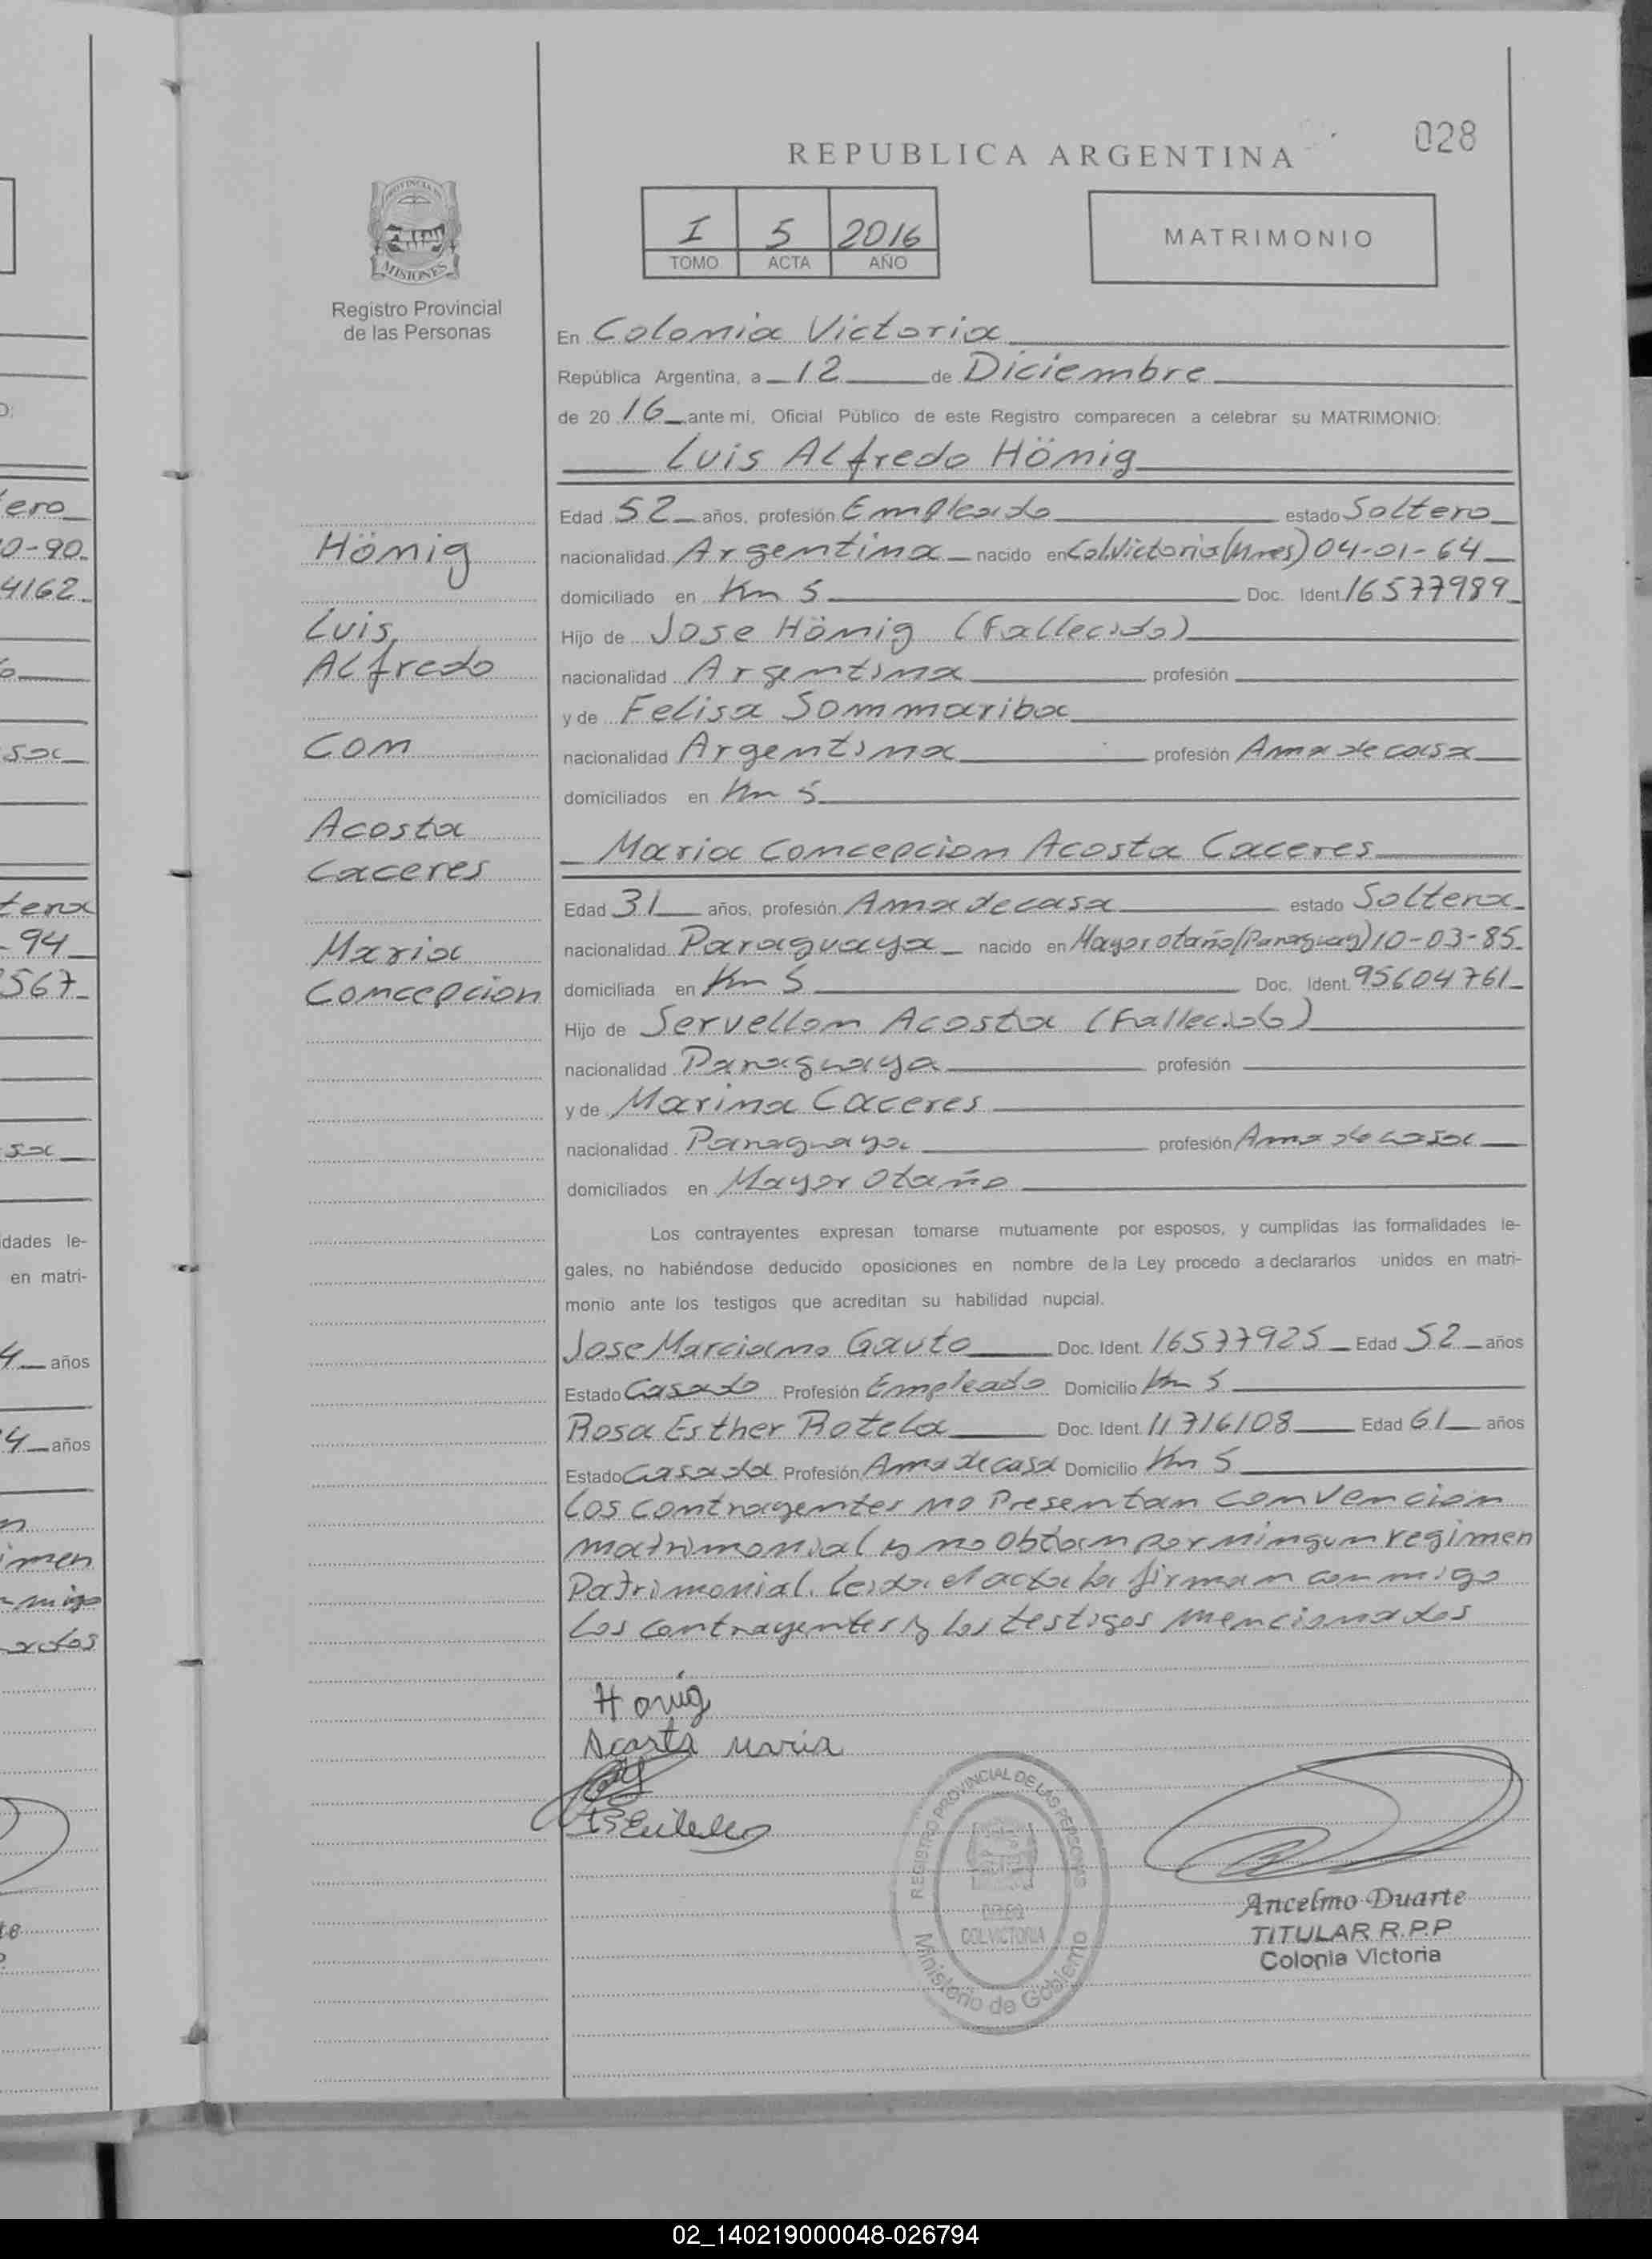 028
REPUBLICA ARGENTINA
PROVINCIA DE
MISIONES
Registro Provincial
de las Personas
I 5 2016
TOMO ACTA AÑO
MATRIMONIO
En Colonia Victoria
República Argentina, a 12 de Diciembre
de 20 16 ante mí, Oficial Público de este Registro comparecen a celebrar su MATRIMONIO:
Luis Alfredo Hönig
Edad 52 años, profesión Empleado estado Soltero
nacionalidad Argentina nacido en Col.Victoria(Mnes) 04-01-64
domiciliado en Km 5 Doc. Ident. 16577989
Hijo de Jose Hönig (Fallecido)
nacionalidad Argentina profesión
y de Felisa Sommariba
nacionalidad Argentina profesión Ama de casa
domiciliados en Km 5
Maria Concepcion Acosta Caceres
Edad 31 años, profesión Ama de casa estado Soltera
nacionalidad Paraguaya nacido en Mayor otaño(Paraguay) 10-03-85
domiciliada en Km 5 Doc. Ident. 95604761
Hijo de Servellon Acosta (Fallecido)
nacionalidad Paraguaya profesión
y de Marina Caceres
nacionalidad Paraguaya profesión Ama de casa
domiciliados en Mayor Otaño
Hönig
Luis,
Alfredo
Con
Acosta
Caceres
Maria
Concepcion
Los contrayentes expresan tomarse mutuamente por esposos, y cumplidas las formalidades le-
gales, no habiéndose deducido oposiciones en nombre de la Ley procedo a declararlos unidos en matri-
monio ante los testigos que acreditan su habilidad nupcial.
Jose Marciano Gauto Doc. Ident. 16577925 Edad 52 años
Estado Casado Profesión Empleado Domicilio Km 5
Rosa Esther Rotela Doc. Ident. 11716108 Edad 61 años
Estado Casada Profesión Ama de casa Domicilio Km 5
Los contrayentes no Presentan convencion
matrimonial y no Obtan por ningun regimen
Patrimonial. leida el acta la firman conmigo
Los contrayentes y los testigos mencionados
Honig
Acosta Maria
REGISTRO PROVINCIAL DE LAS PERSONAS
COL.VICTORIA
Ministerio de Gobierno
Ancelmo Duarte
TITULAR R.P.P
Colonia Victoria
ero
0-90.
4162
sa
tera
-94
567
sa
dades le-
en matri-
4 años
4 años
n
imen
migo
ados
te
02_140219000048-026794